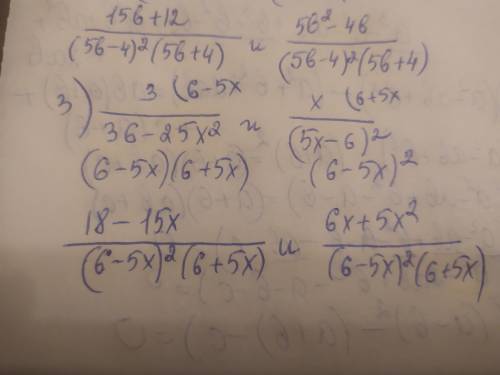 15b+12 / (5b-4)²(5b+4) и 5b²-4b / (5b-4)²(5b+4)
3) 3 (6-5x / 36-25x² и x (6+5x / (5x-6)²
(6-5x)(6+5x) (6-5x)²
18-15x / (6-5x)²(6+5x) и 6x+5x² / (6-5x)²(6+5x)